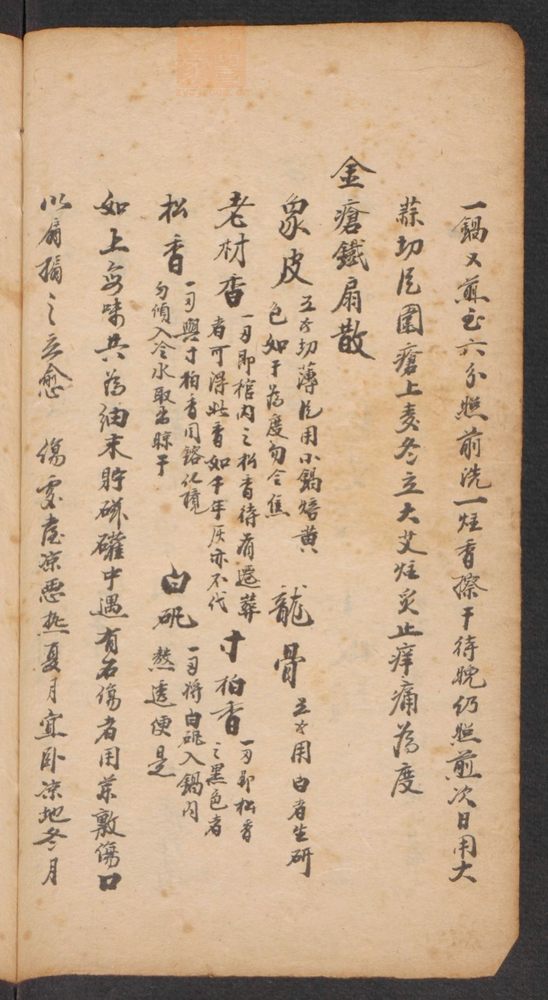 一鍋又煎至六分照前洗一炷香擦干待晚仍照煎次日用大
蒜切片圍瘡上麦冬立大艾炷灸止痒痛為度
金瘡鐵扇散
象皮 五錢切薄片用小鍋焙黄
色如干為度勿令焦
龍骨 五錢用白者生研
老材香 一两即棺内之松香待有遷葬
者可得此香如千年灰亦不代
寸柏香 一两即松香
之黑色者
松香 一两與寸柏香同鎔化攪
勻傾入冷水取出晾干
白矾 一两将白矾入鍋内
熬透便是
如上各味共為細末貯磁礶中遇有右傷者用藥敷傷口
以扇搧之立愈 傷處宜凉惡热夏月宜卧凉地冬月